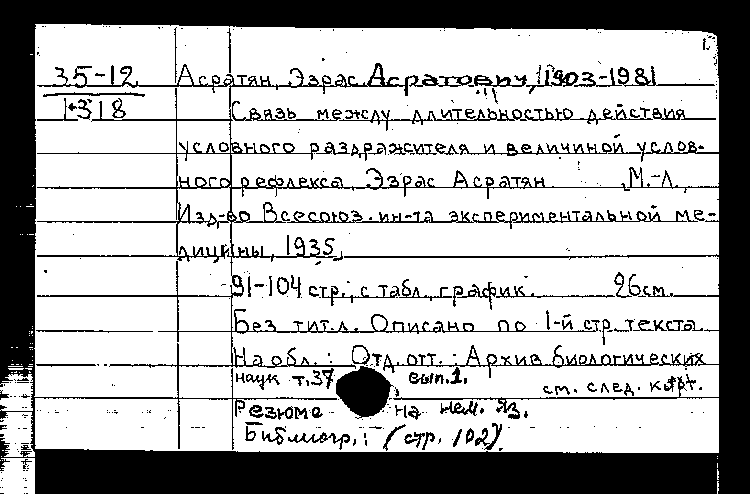 1.
35-12 Асратян, Эзрас Асратович, 1903-1981
1318 Связь между длительностью действия
условного раздражителя и величиной услов-
ного рефлекса. Эзрас Асратян. М.-Л.,
Изд-во Всесоюз. ин-та экспериментальной ме-
дицины, 1935.
91-104 стр., с табл., график. 26см.
Без тит.л. Описано по 1-й стр. текста.
На обл.: Отд. отт.: Архив биологических
наук т.37, вып.1. см. след. карт.
Резюме на нем. яз.
Библиогр.: (стр. 102).